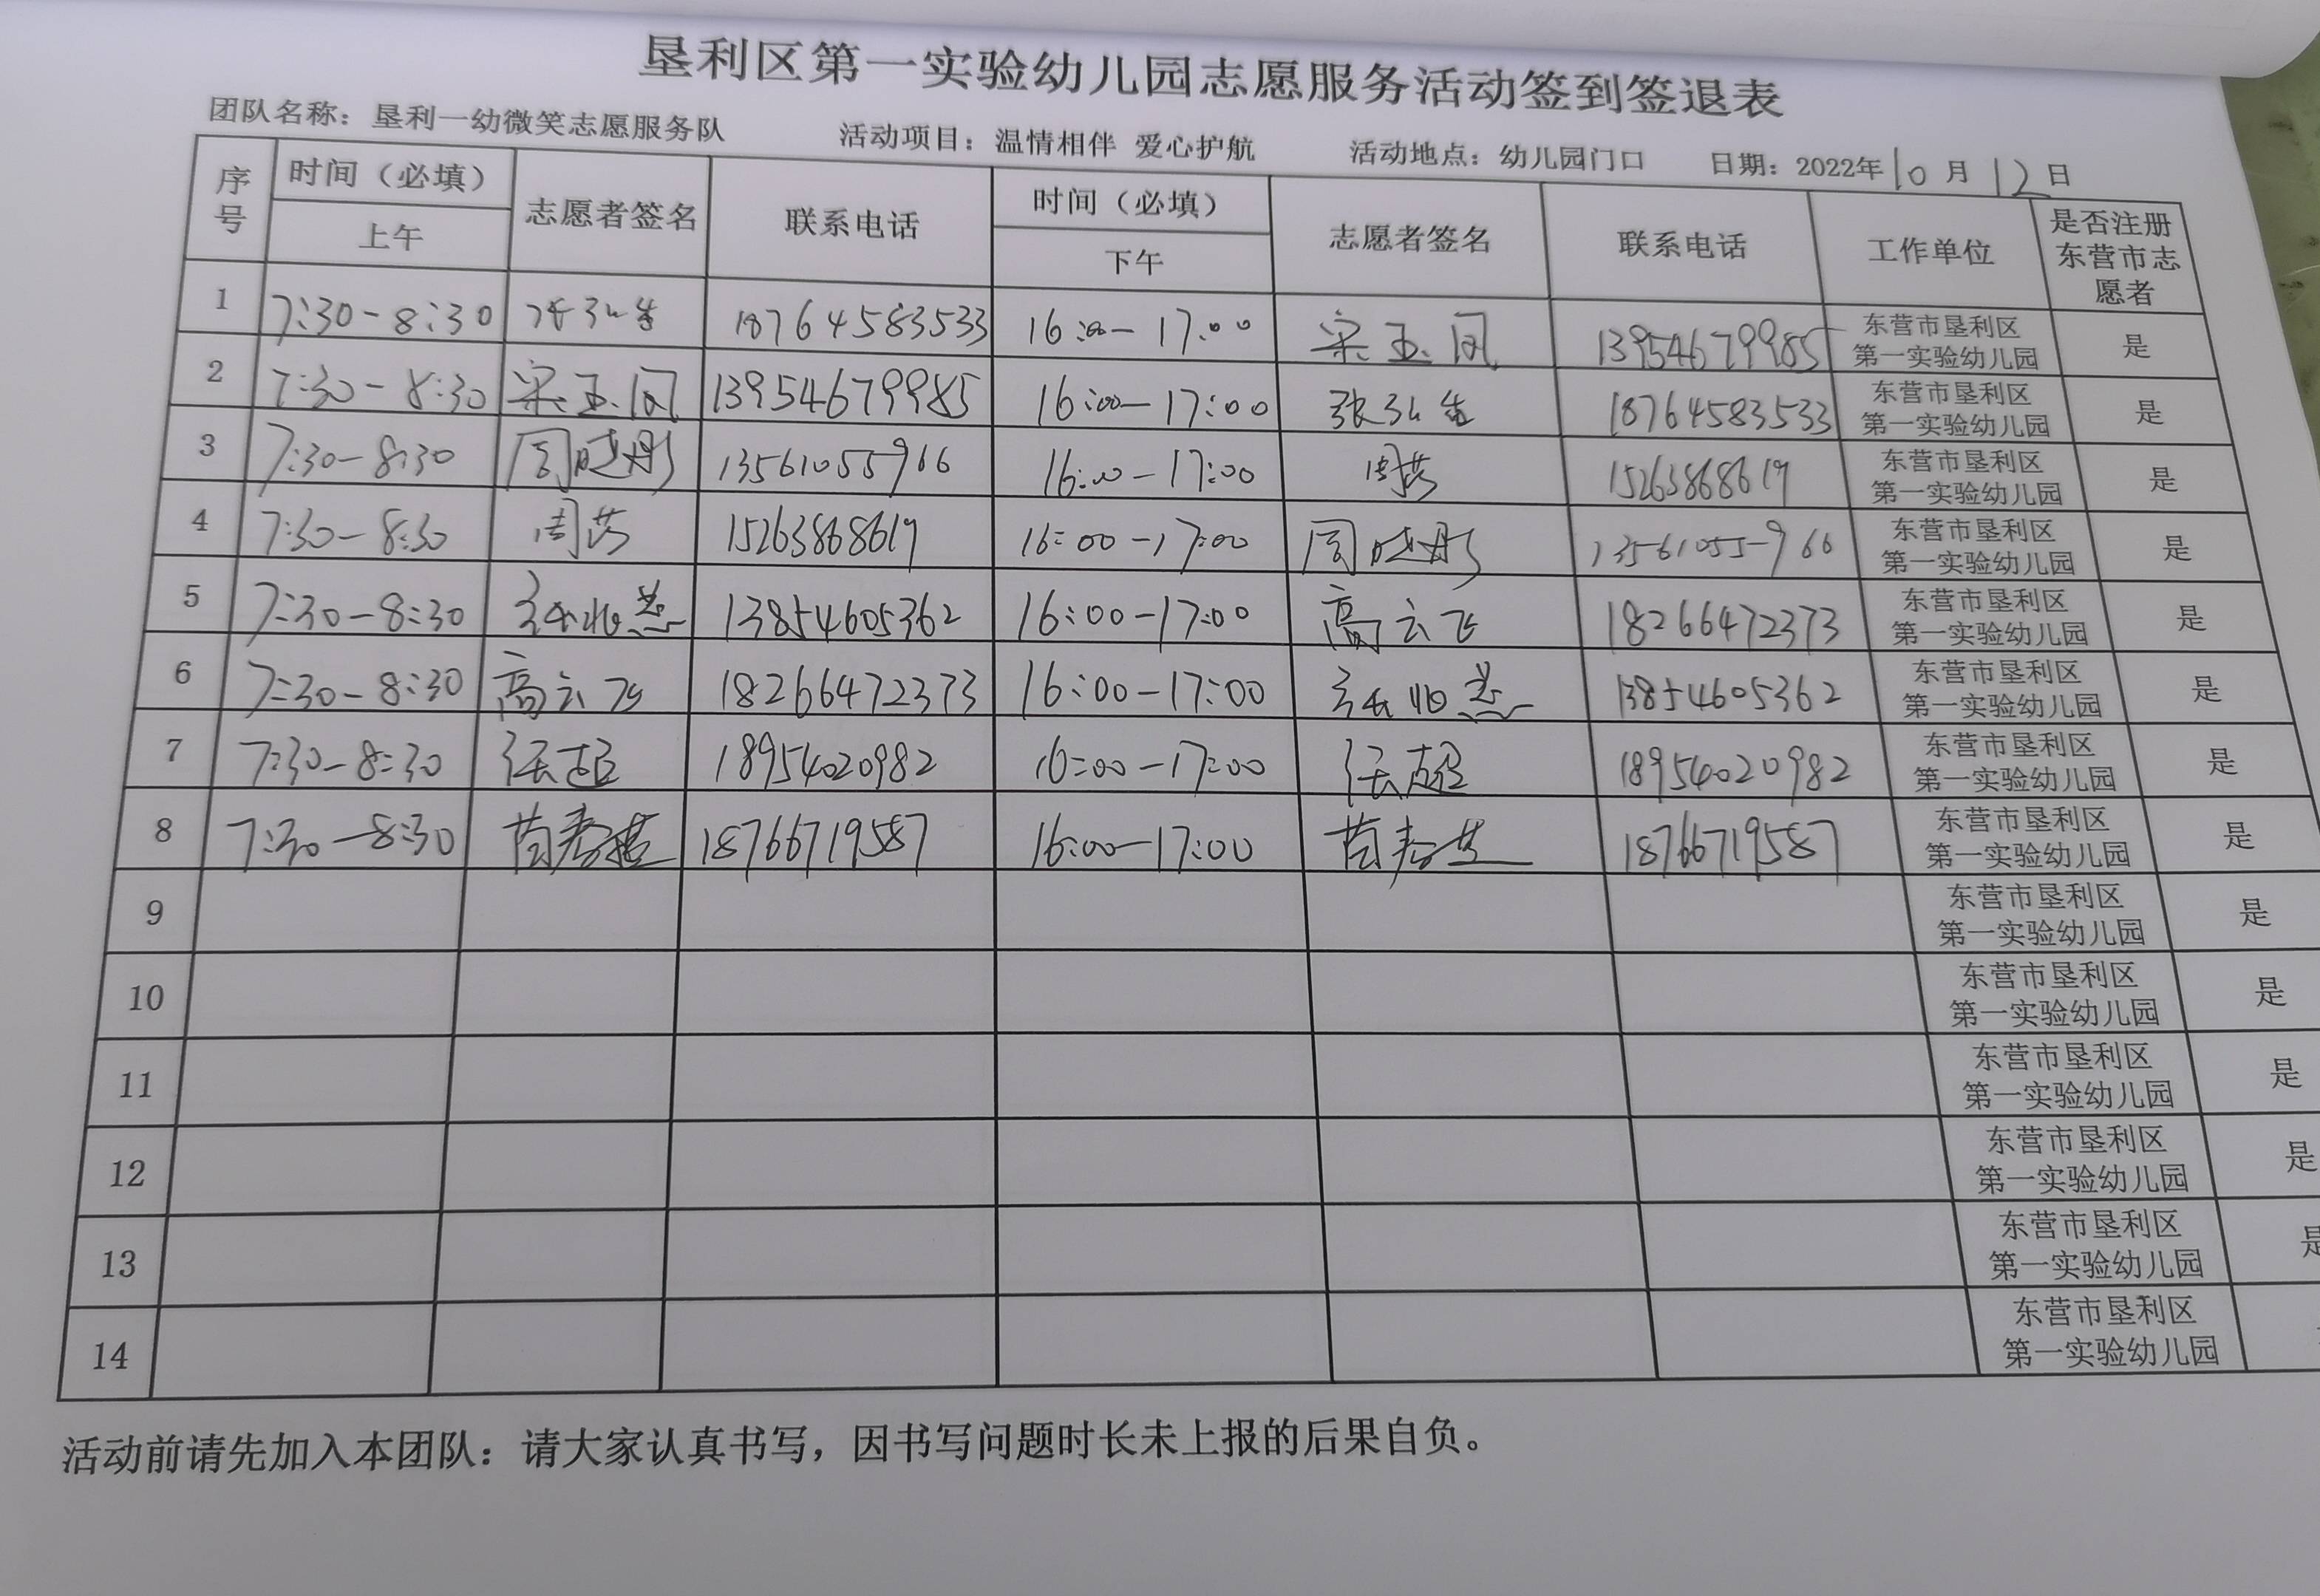 垦利区第一实验幼儿园志愿服务活动签到签退表
团队名称：垦利一幼微笑志愿服务队 活动项目：温情相伴 爱心护航 活动地点：幼儿园门口 日期：2022年10月12日
序号 时间（必填） 上午 志愿者签名 联系电话 时间（必填） 下午 志愿者签名 联系电话 工作单位 是否注册东营市志愿者
1 7:30-8:30 18764583533 16:00-17:00 宋玉凤 13954679985 东营市垦利区第一实验幼儿园 是
2 7:30-8:30 宋玉凤 13954679985 16:00-17:00 18764583533 东营市垦利区第一实验幼儿园 是
3 7:30-8:30 周晓彤 13561055966 16:00-17:00 周 15263868619 东营市垦利区第一实验幼儿园 是
4 7:30-8:30 周 15263868619 16:00-17:00 周晓彤 13561055966 东营市垦利区第一实验幼儿园 是
5 7:30-8:30 13854605362 16:00-17:00 高云飞 18266472373 东营市垦利区第一实验幼儿园 是
6 7:30-8:30 高云飞 18266472373 16:00-17:00 13854605362 东营市垦利区第一实验幼儿园 是
7 7:30-8:30 任超 18954020982 16:00-17:00 任超 18954020982 东营市垦利区第一实验幼儿园 是
8 7:30-8:30 18766719587 16:00-17:00 18766719587 东营市垦利区第一实验幼儿园 是
9 东营市垦利区第一实验幼儿园 是
10 东营市垦利区第一实验幼儿园 是
11 东营市垦利区第一实验幼儿园 是
12 东营市垦利区第一实验幼儿园 是
13 东营市垦利区第一实验幼儿园 是
14 东营市垦利区第一实验幼儿园
活动前请先加入本团队：请大家认真书写，因书写问题时长未上报的后果自负。